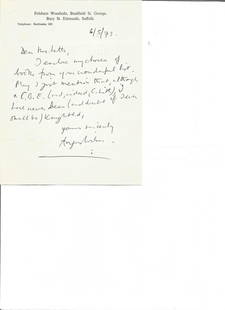 Felsham Woodside, Bradfield St. George,
Bury St. Edmunds, Suffolk.
Telephone:
6/5/73
Dear Mrs Letts,
I enclose my choice of
books from your wonderful list.
May I just mention that, although
a C.B.E. (and, indeed, C.Litt.), I
have never been (and doubt if I ever
shall be) knighted,
yours sincerely
Angus Wilson